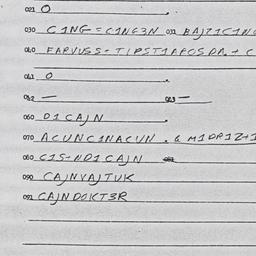 021 0
030 C1NG = C1NG3N 031 BAJZ1C1NG
040 FARVUSS - T1PST1AFOSDA. + C
041 0
042 — 043 —
050 D1 CAJN
070 ACUNC1NACUN . & M1DR1Z+1
080 C1S+ND1 CAJN
090 CAJNVAJTUK
091 CAJNDOKT3R